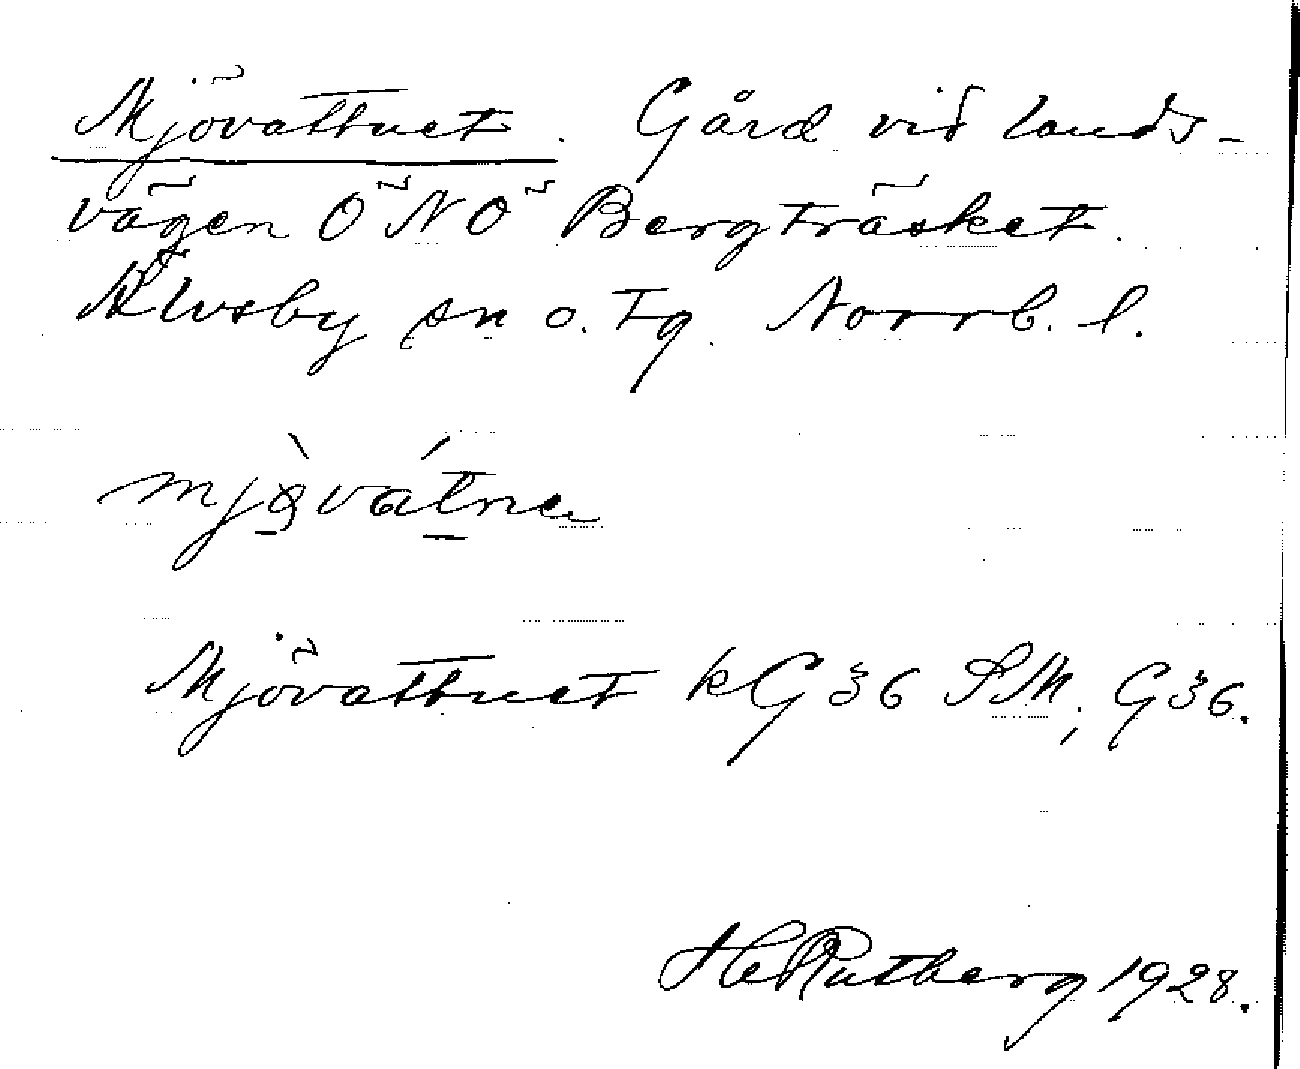 Mjövattnet. Gård vid lands-
vägen ÖNÖ Bergträsket.
Älvsby sn o. tg. Norrb. l.
mjòvátne
Mjövattnet kG36 SM, G36.
HeRutberg 1928.